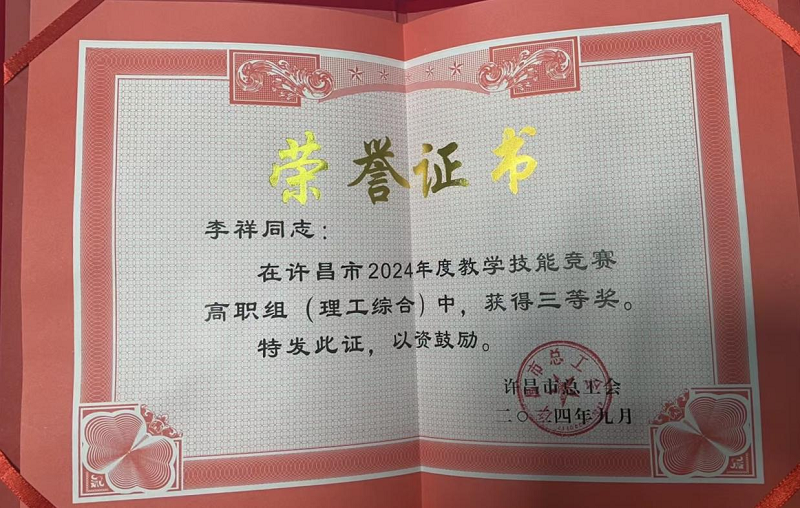 荣誉证书
李祥同志：
在许昌市2024年度教学技能竞赛
高职组（理工综合）中，获得三等奖。
特发此证，以资鼓励。
许昌市总工会
二〇二四年九月